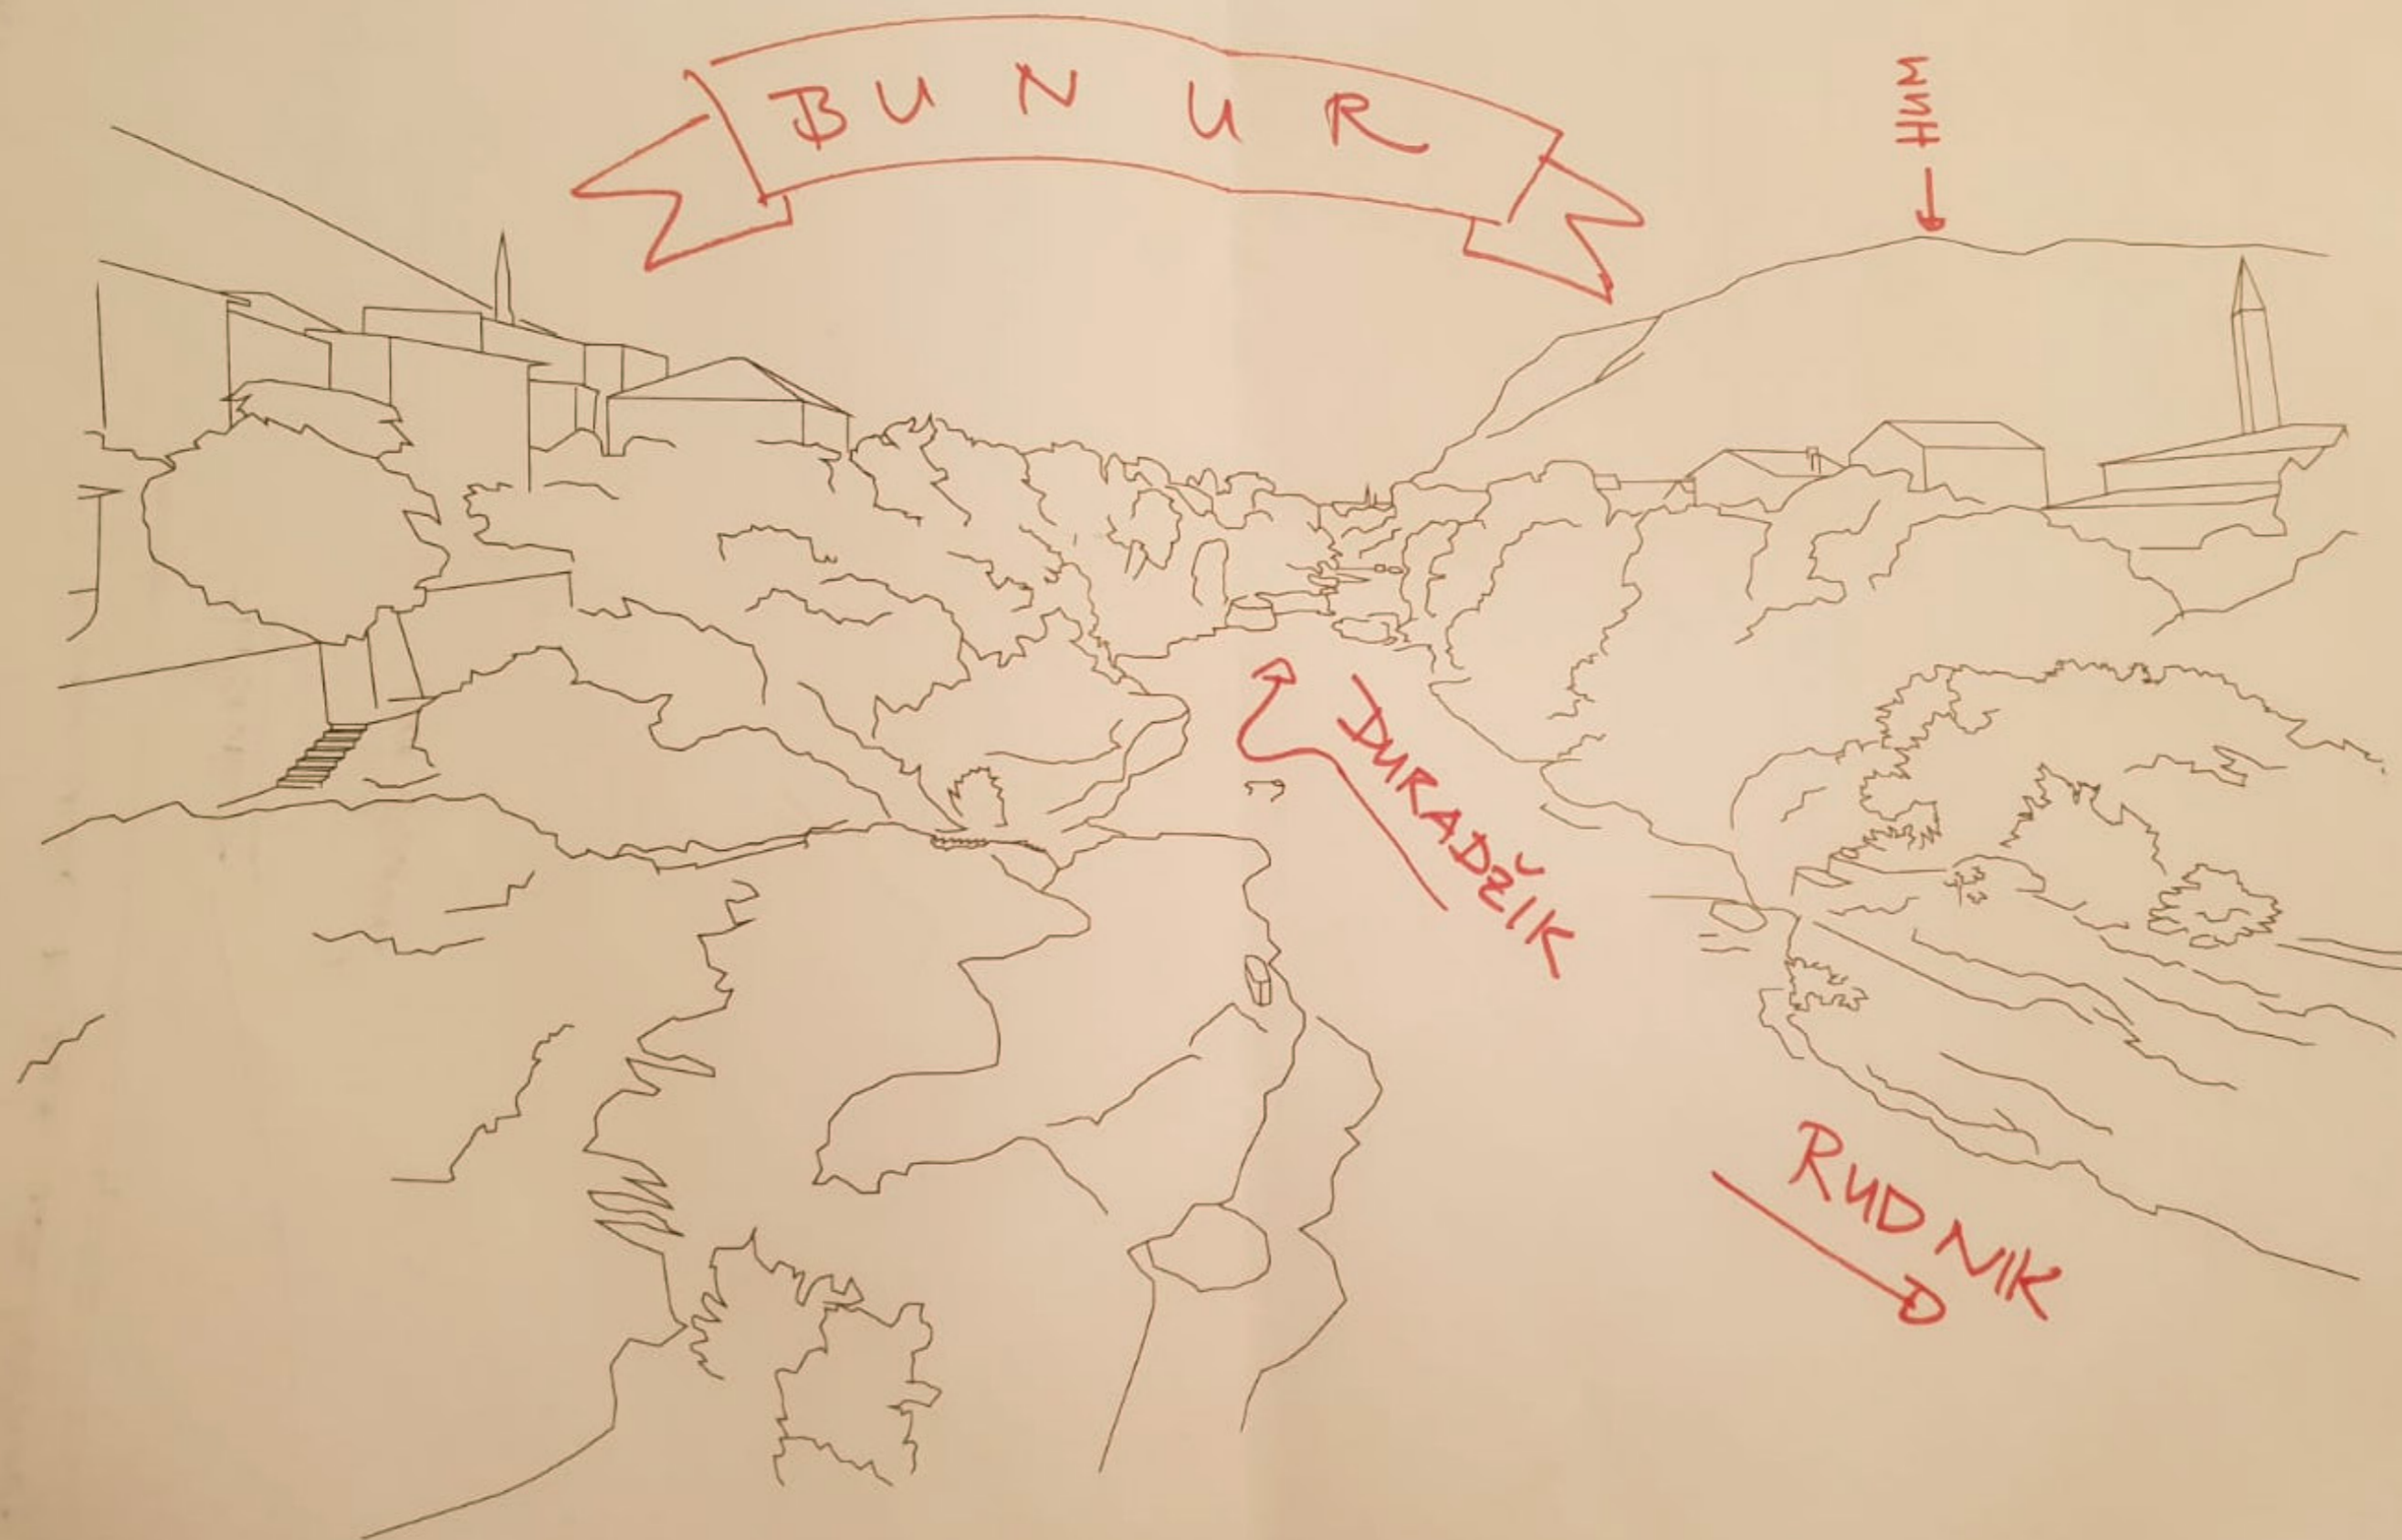 BUNUR
HUM
DURADŽIK
RUDNIK